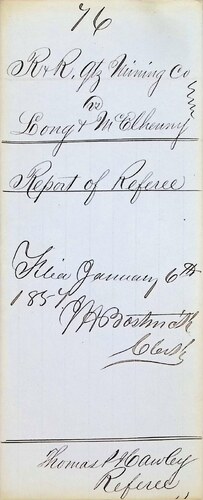 76
R & R. Qtz Mining Co
vs
Long & McElhenny
Report of Referee
Filed January 6th
185
Clerk
Thomas P Hawley
Referee